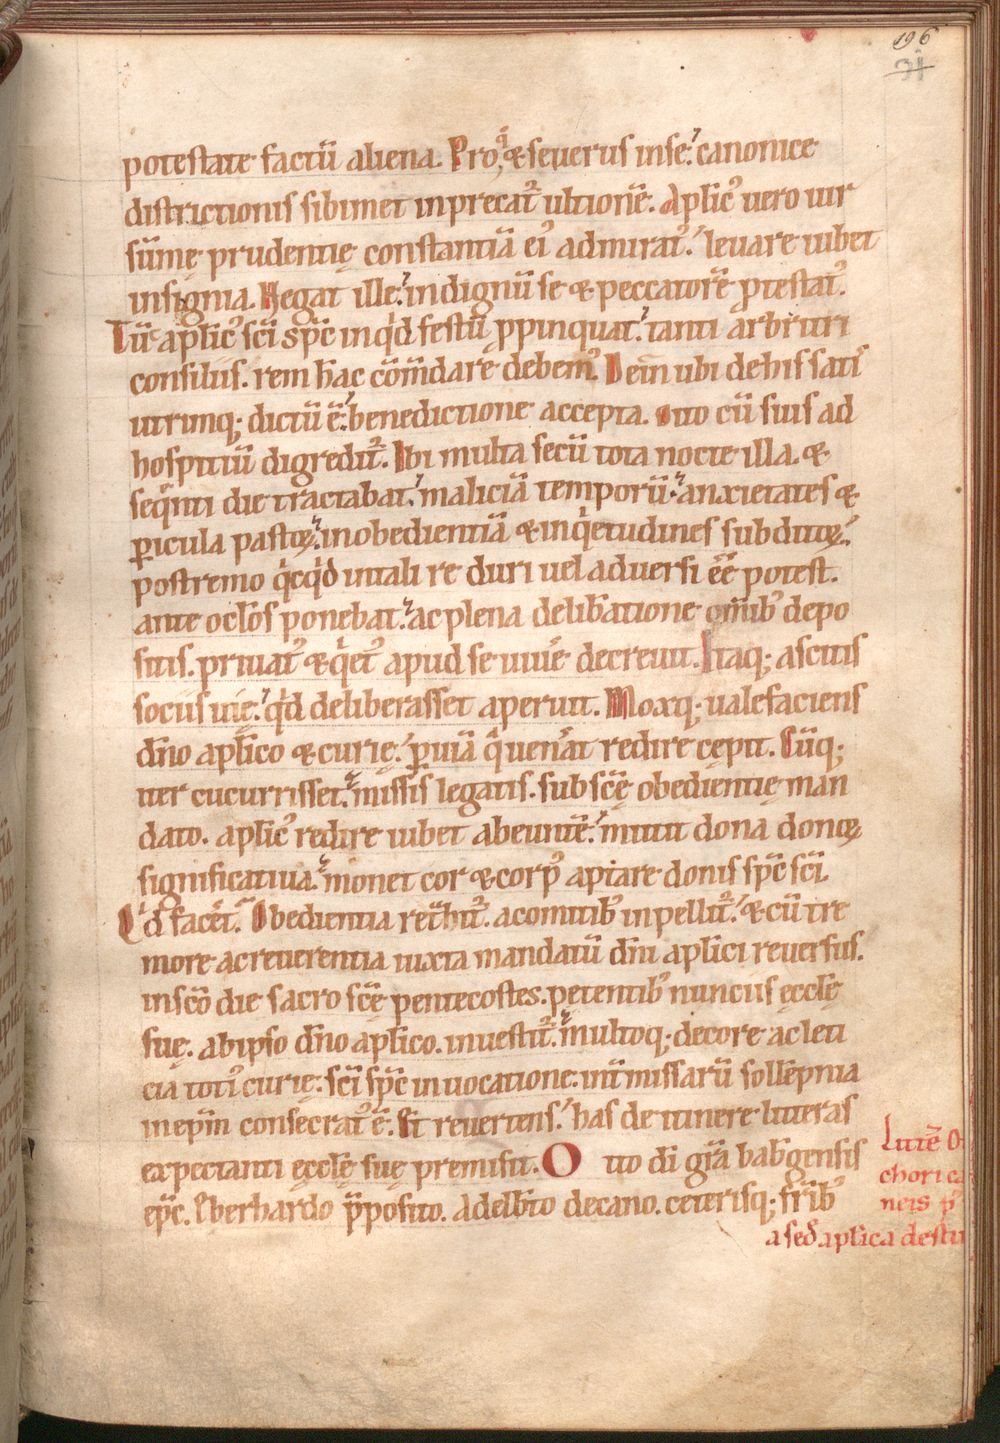 196
31
potestate factū aliena. Proq; & seuerus in se. canonice
districtionis sibimet inprecat᷑ ultionē. Aplic᷒ uero uir
sūme prudentię constantiā ei᷒ admirat᷒. leuare iubet
insignia. Negat ille. indignū se & peccatorē ꝓtestat᷒.
Tū aplic᷒ sc̄i sp̄c inqͥd festū ꝓpinquat. tanti arbitri
consiliis. rem hac cōm̄dare debem᷒. Dein ubi de his satis
utrinq; dictū ē. benedictione accepta. Otto cū suis ad
hospitiū digredit᷑. Ibi multa secū tota nocte illa. &
seq̄nti die tractabat. maliciā temporū. anxietates &
ꝑicula pastoꝝ. inobedientiā & inqͥetudines subditoꝝ.
postremo qͥcqͥd in tali re duri uel aduersi ēē potest.
ante oc̄los ponebat. ac plena delib̄atione om̄ib᷒ depo
sitis. priuat᷒ & qͥet᷒ apud se uiuē decreuit. Itaq; ascitis
sociis uię. qͥd deliberasset aperuit. Moxq; ualefaciens
dn̄o aplico & curię. ꝑ uiā q̄ uenāt redire cepit. Cūq;
iter cucurrisset. missis legatis. sub sc̄ę obedientię man
dato. aplic᷒ redire iubet abeuntē. mittit dona donoꝝ
significatiua. monet cor & corp᷒ aptare donis sp̄c sc̄i.
Qͥd facēt. Obedientia ret̄hit᷑. a comitib᷒ inpellit᷑. & cū tre
more ac reuerentia iuxta mandatū dn̄i aplici reuersus.
in sc̄o die sacro sc̄e pentecostes. petentib᷒ nunciis ęcclę̄
suę. ab ipso dn̄o aplico. inuestit᷑. multoq; decore ac leti
cia toti᷒ curię. sc̄i sp̄c inuocatione. int̄ missarū sollēpnia
in ep̄m consecrat᷒ ē. Et reuertens. has de itinere litteras
expectanti ęcclę̄ suę premisit. Otto dī gr̄a bab̄gensis
ep̄c. Eberhardo p̄posito. Adelb̄to decano. ceterisq; fr̄ib᷒
Litte᷑ O
chori ca
neis p᷒
a sed aplica desti